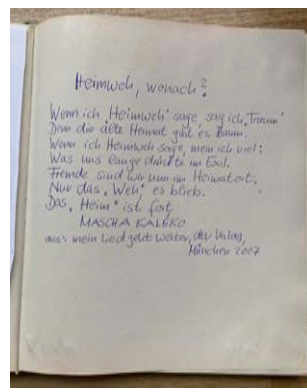 Heimweh, wonach?
Wenn ich „Heimweh“ sage, sag ich „Traum“
Denn die alte Heimat gibt es kaum.
Wenn ich Heimweh sage, mein ich viel:
Was uns lange drückte im Exil.
Fremde sind wir nun im Heimatort.
Nur das „Weh“ es blieb.
Das „Heim“ ist fort
MASCHA KALÉKO
aus: mein Lied geht weiter, dtv Verlag,
München 2007